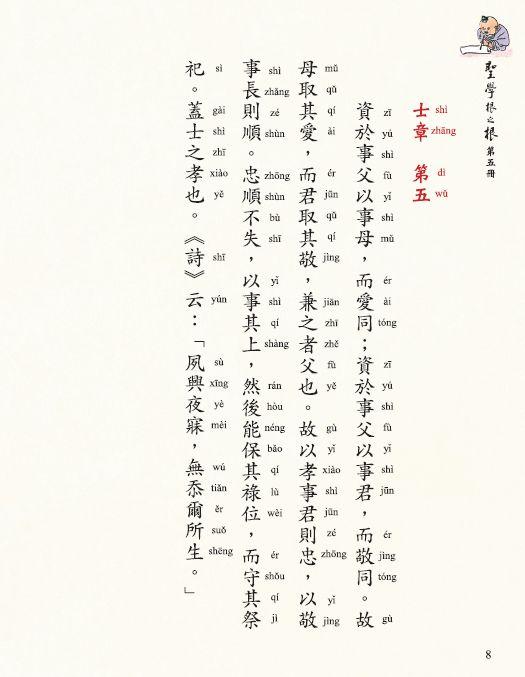 聖學根之根 第五冊
士章 第五
shì zhāng dì wǔ
資於事父以事母，而愛同；資於事父以事君，而敬同。故
zī yú shì fù yǐ shì mǔ ér ài tóng zī yú shì fù yǐ shì jūn ér jìng tóng gù
母取其愛，而君取其敬，兼之者父也。故以孝事君則忠，以敬
mǔ qǔ qí ài ér jūn qǔ qí jìng jiān zhī zhě fù yě gù yǐ xiào shì jūn zé zhōng yǐ jìng
事長則順。忠順不失，以事其上，然後能保其祿位，而守其祭
shì zhǎng zé shùn zhōng shùn bù shī yǐ shì qí shàng rán hòu néng bǎo qí lù wèi ér shǒu qí jì
祀。蓋士之孝也。《詩》云：「夙興夜寐，無忝爾所生。」
sì gài shì zhī xiào yě shī yún sù xīng yè mèi wú tiǎn ěr suǒ shēng
8